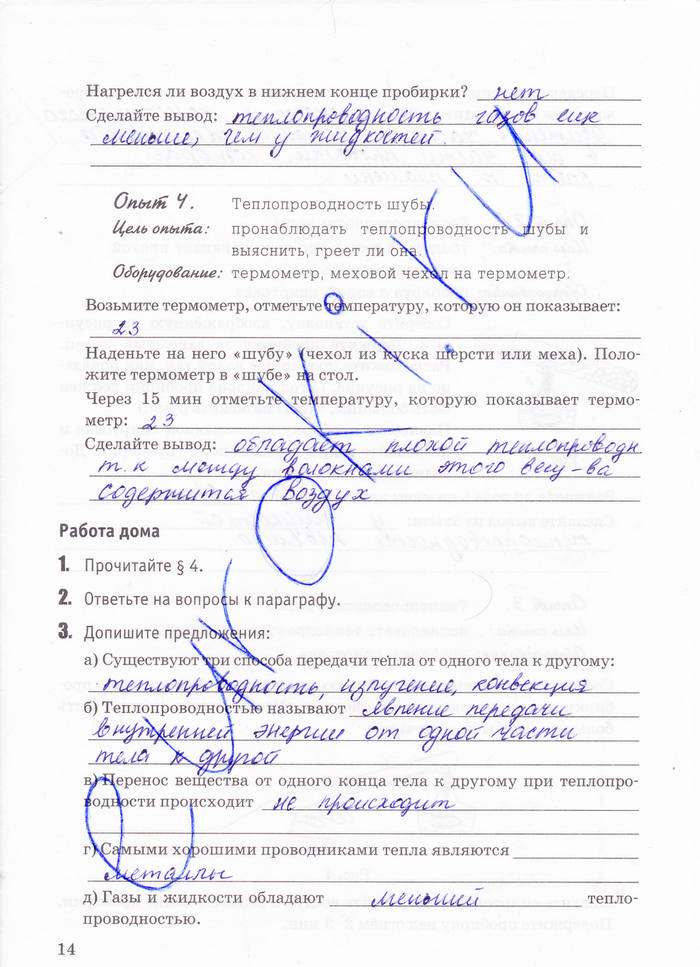 Нагрелся ли воздух в нижнем конце пробирки? нет
Сделайте вывод: теплопроводность газов еще
меньше, чем у жидкостей.
Опыт 4. Теплопроводность шубы.
Цель опыта: пронаблюдать теплопроводность шубы и
выяснить, греет ли она.
Оборудование: термометр, меховой чехол на термометр.
Возьмите термометр, отметьте температуру, которую он показывает:
23
Наденьте на него «шубу» (чехол из куска шерсти или меха). Поло-
жите термометр в «шубе» на стол.
Через 15 мин отметьте температуру, которую показывает термо-
метр: 23
Сделайте вывод: обладает плохой теплопроводн.
т.к между волокнами этого вещ-ва
содержится воздух
Работа дома
1. Прочитайте § 4.
2. Ответьте на вопросы к параграфу.
3. Допишите предложения:
а) Существуют три способа передачи тепла от одного тела к другому:
теплопроводность, излучение, конвекция
б) Теплопроводностью называют явление передачи
внутренней энергии от одной части
тела к другой
в) Перенос вещества от одного конца тела к другому при теплопро-
водности происходит не происходит
г) Самыми хорошими проводниками тепла являются
металлы
д) Газы и жидкости обладают меньшей тепло-
проводностью.
14